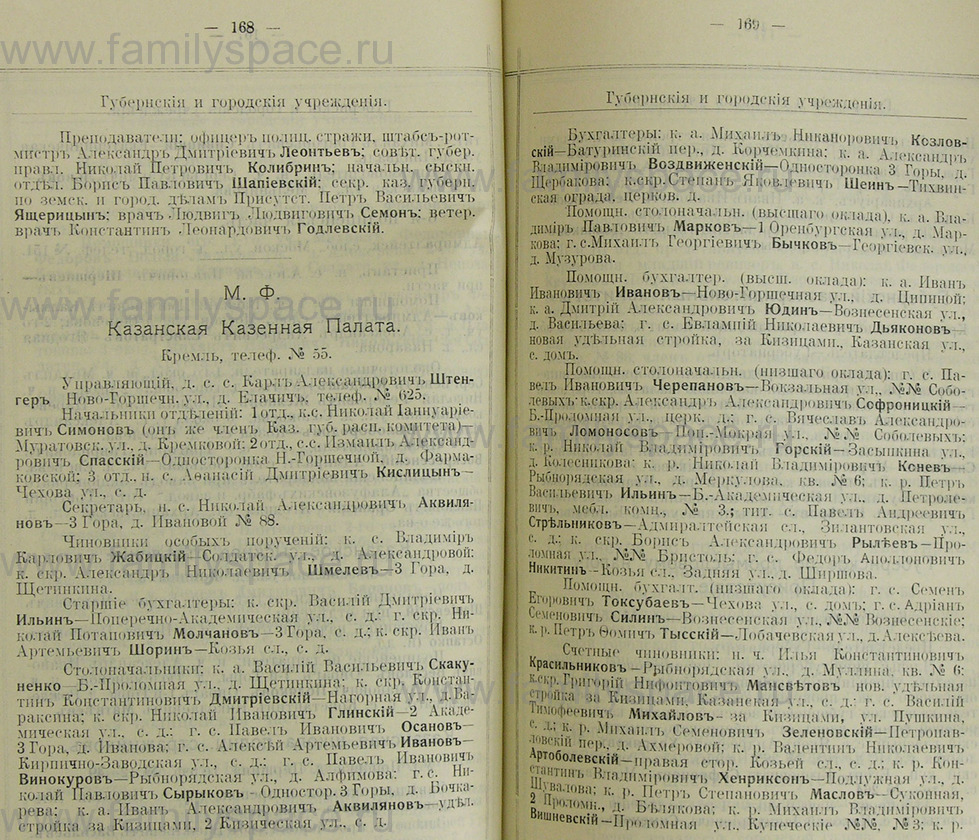 — 168 —
Губернскія и городскія учрежденія.
Преподаватели: офицеръ полиц. стражи, штабсъ-рот-
мистръ Александръ Дмитріевичъ Леонтьевъ; совѣт. губер.
правл. Николай Петровичъ Колибринъ; начальн. сыскн.
отдѣл. Борисъ Павловичъ Шапіевскій; секр. каз. губерн.
по земск. и город. дѣламъ Присутст. Петръ Васильевичъ
Ящерицынъ; врачъ Людвигъ Людвиговичъ Семонъ; ветер.
врачъ Константинъ Леонардовичъ Годлевскій.
М. Ф.
Казанская Казенная Палата.
Кремль, телеф. № 55.
Управляющій, д. с. с. Карлъ Александровичъ Штен-
геръ Ново-Горшечн. ул., д. Елачичъ, телеф. № 625.
Начальники отдѣленій: 1 отд., к.с. Николай Іаннуаріе-
вичъ Симоновъ (онъ же членъ Каз. губ. расп. комитета)—
Муратовск. ул., д. Кремковой; 2 отд., с.с. Измаилъ Александ-
ровичъ Спасскій—Односторонка Н.-Горшечной, д. Фарма-
ковской; 3 отд., н. с. Аѳанасій Дмитріевичъ Кислицынъ—
Чехова ул., с. д.
Секретарь, н. с. Николай Александровичъ Аквиля-
новъ—3 Гора, д. Ивановой № 88.
Чиновники особыхъ порученій: к. с. Владиміръ
Карловичъ Жабицкій—Солдатск. ул., д. Александровой;
к. скр. Александръ Николаевичъ Шмелевъ—3 Гора, д.
Щетинкина.
Старшіе бухгалтеры: к. скр. Василій Дмитріевичъ
Ильинъ—Поперечно-Академическая ул., с. д.; г. скр. Ни-
колай Потаповичъ Молчановъ—3 Гора, с. д.; к. скр. Иванъ
Артемьевичъ Шоринъ—Козья сл., с. д.
Столоначальники: к. а. Василій Васильевичъ Скаку-
ненко—Б.-Проломная ул., д. Щетинкина; к. скр. Констан-
тинъ Константиновичъ Дмитріевскій—Нагорная ул., д. Ва-
раксина; к. скр. Николай Ивановичъ Глинскій—2 Акаде-
мическая ул., с. д.; г. с. Павелъ Ивановичъ Осановъ—
3 Гора, д. Иванова; г. с. Алексѣй Артемьевичъ Ивановъ—
Кирпично-Заводская ул., с. д.; г. с. Павелъ Ивановичъ
Винокуровъ—Рыбнорядская ул., д. Алфимова; г. с. Ни-
колай Павловичъ Сырыковъ - Одностор. 3 Горы, д. Бочка-
рева; к. а. Иванъ Александровичъ Аквиляновъ—удѣл.
стройка за Кизицами, 2 Кизическая ул., с. д.
— 169 —
Губернскія и городскія учрежденія.
Бухгалтеры: к. а. Михаилъ Никаноровичъ Козлов-
скій—Батуринскій пер., д. Корчемкина; к. а. Александръ
Владиміровичъ Воздвиженскій—Односторонка 3 Горы, д.
Щербакова; к.скр.Степанъ Яковлевичъ Шеинъ—Тихвин-
ская ограда, церков. д.
Помощн. столоначальн. (высшаго оклада), к. а. Вла-
диміръ Павловичъ Марковъ—1 Оренбургская ул., д. Мар-
кова; г. с.Михаилъ Георгіевичъ Бычковъ—Георгіевск. ул.,
д. Музурова.
Помощн. бухгалтер. (высш. оклада): к. а. Иванъ
Ивановичъ Ивановъ—Ново-Горшечная ул., д. Ципиной;
к. а. Дмитрій Александровичъ Юдинъ—Вознесенская ул.,
д. Васильева; г. с. Евлампій Николаевичъ Дьяконовъ—
новая удѣльная стройка, за Кизицами, Казанская ул.,
с. домъ.
Помощн. столоначальн. (низшаго оклада): г. с. Па-
велъ Ивановичъ Черепановъ—Вокзальная ул., №№ Собо-
левыхъ; к.скр. Александръ Александровичъ Софроницкій—
Б.-Проломная ул., церк. д.; г. с. Вячеславъ Александро-
вичъ Ломоносовъ—Поп.-Мокрая ул., №№ Соболевыхъ;
к. р. Николай Владиміровичъ Горскій—Засыпкина ул.,
д. Колесникова; к. р. Николай Владиміровичъ Коневъ—
Рыбнорядская ул., д. Меркулова, кв. № 6; к. р. Петръ
Васильевичъ Ильинъ—Б.-Академическая ул., д. Петроле-
вичъ, мебл. комн., № 3.; тит. с. Павелъ Андреевичъ
Стрѣльниковъ—Адмиралтейская сл., Зилантовская ул.,
с. д.; к. скр. Борисъ Александровичъ Рылѣевъ—Про-
ломная ул., №№ Бристоль; г. с. Федоръ Аполлоновичъ
Никитинъ - Козья сл., Задняя ул., д. Ширшова.
Помощн. бухгалт. (низшаго оклада): г. с. Семенъ
Егоровичъ Токсубаевъ—Чехова ул., с. домъ; г. с. Адріанъ
Семеновичъ Силинъ—Вознесенская ул., №№ Вознесенскіе;
к. р. Петръ Ѳомичъ Тысскій—Лобачевская ул., д. Алексѣева.
Счетные чиновники: н. ч. Илья Константиновичъ
Красильниковъ—Рыбнорядская ул., д. Муллина, кв. № 6;
к.скр. Григорій Нифонтовичъ Мансвѣтовъ нов. удѣльная
стройка за Кизицами, Казанская ул., с. д.; г. с. Василій
Тимофеевичъ Михайловъ- за Кизицами, ул. Пушкина,
с. д.; к. р. Михаилъ Семеновичъ Зеленовскій—Петропав-
ловскій пер., д. Ахмеровой; к. р. Валентинъ Николаевичъ
Артоболевскій—правая стор. Козьей сл., с. д.; к. р. Кон-
стантинъ Владиміровичъ Хенриксонъ—Подлужная ул., д.
Шувалова; к. р. Петръ Степановичъ Масловъ—Суконная,
2 Проломн., д. Бѣлякова; к. р. Михаилъ Владиміровичъ
Вишневскій—Проломная ул., Купеческіе №№, № 3; к. р.
www.familyspace.ru
www.familyspace.ru